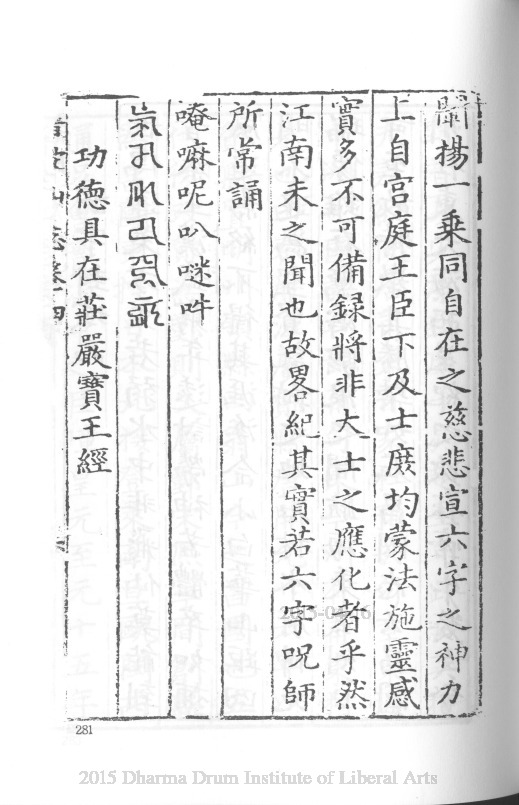 闡揚一乘同自在之慈悲宣六字之神力
上自宮庭王臣下及士庶均蒙法施靈感
實多不可備録將非大士之應化者乎然
江南未之聞也故畧紀其實若六字呪師
所常誦
唵嘛呢叭𠺗吽
功德具在莊嚴寶王經
281
2015 Dharma Drum Institute of Liberal Arts